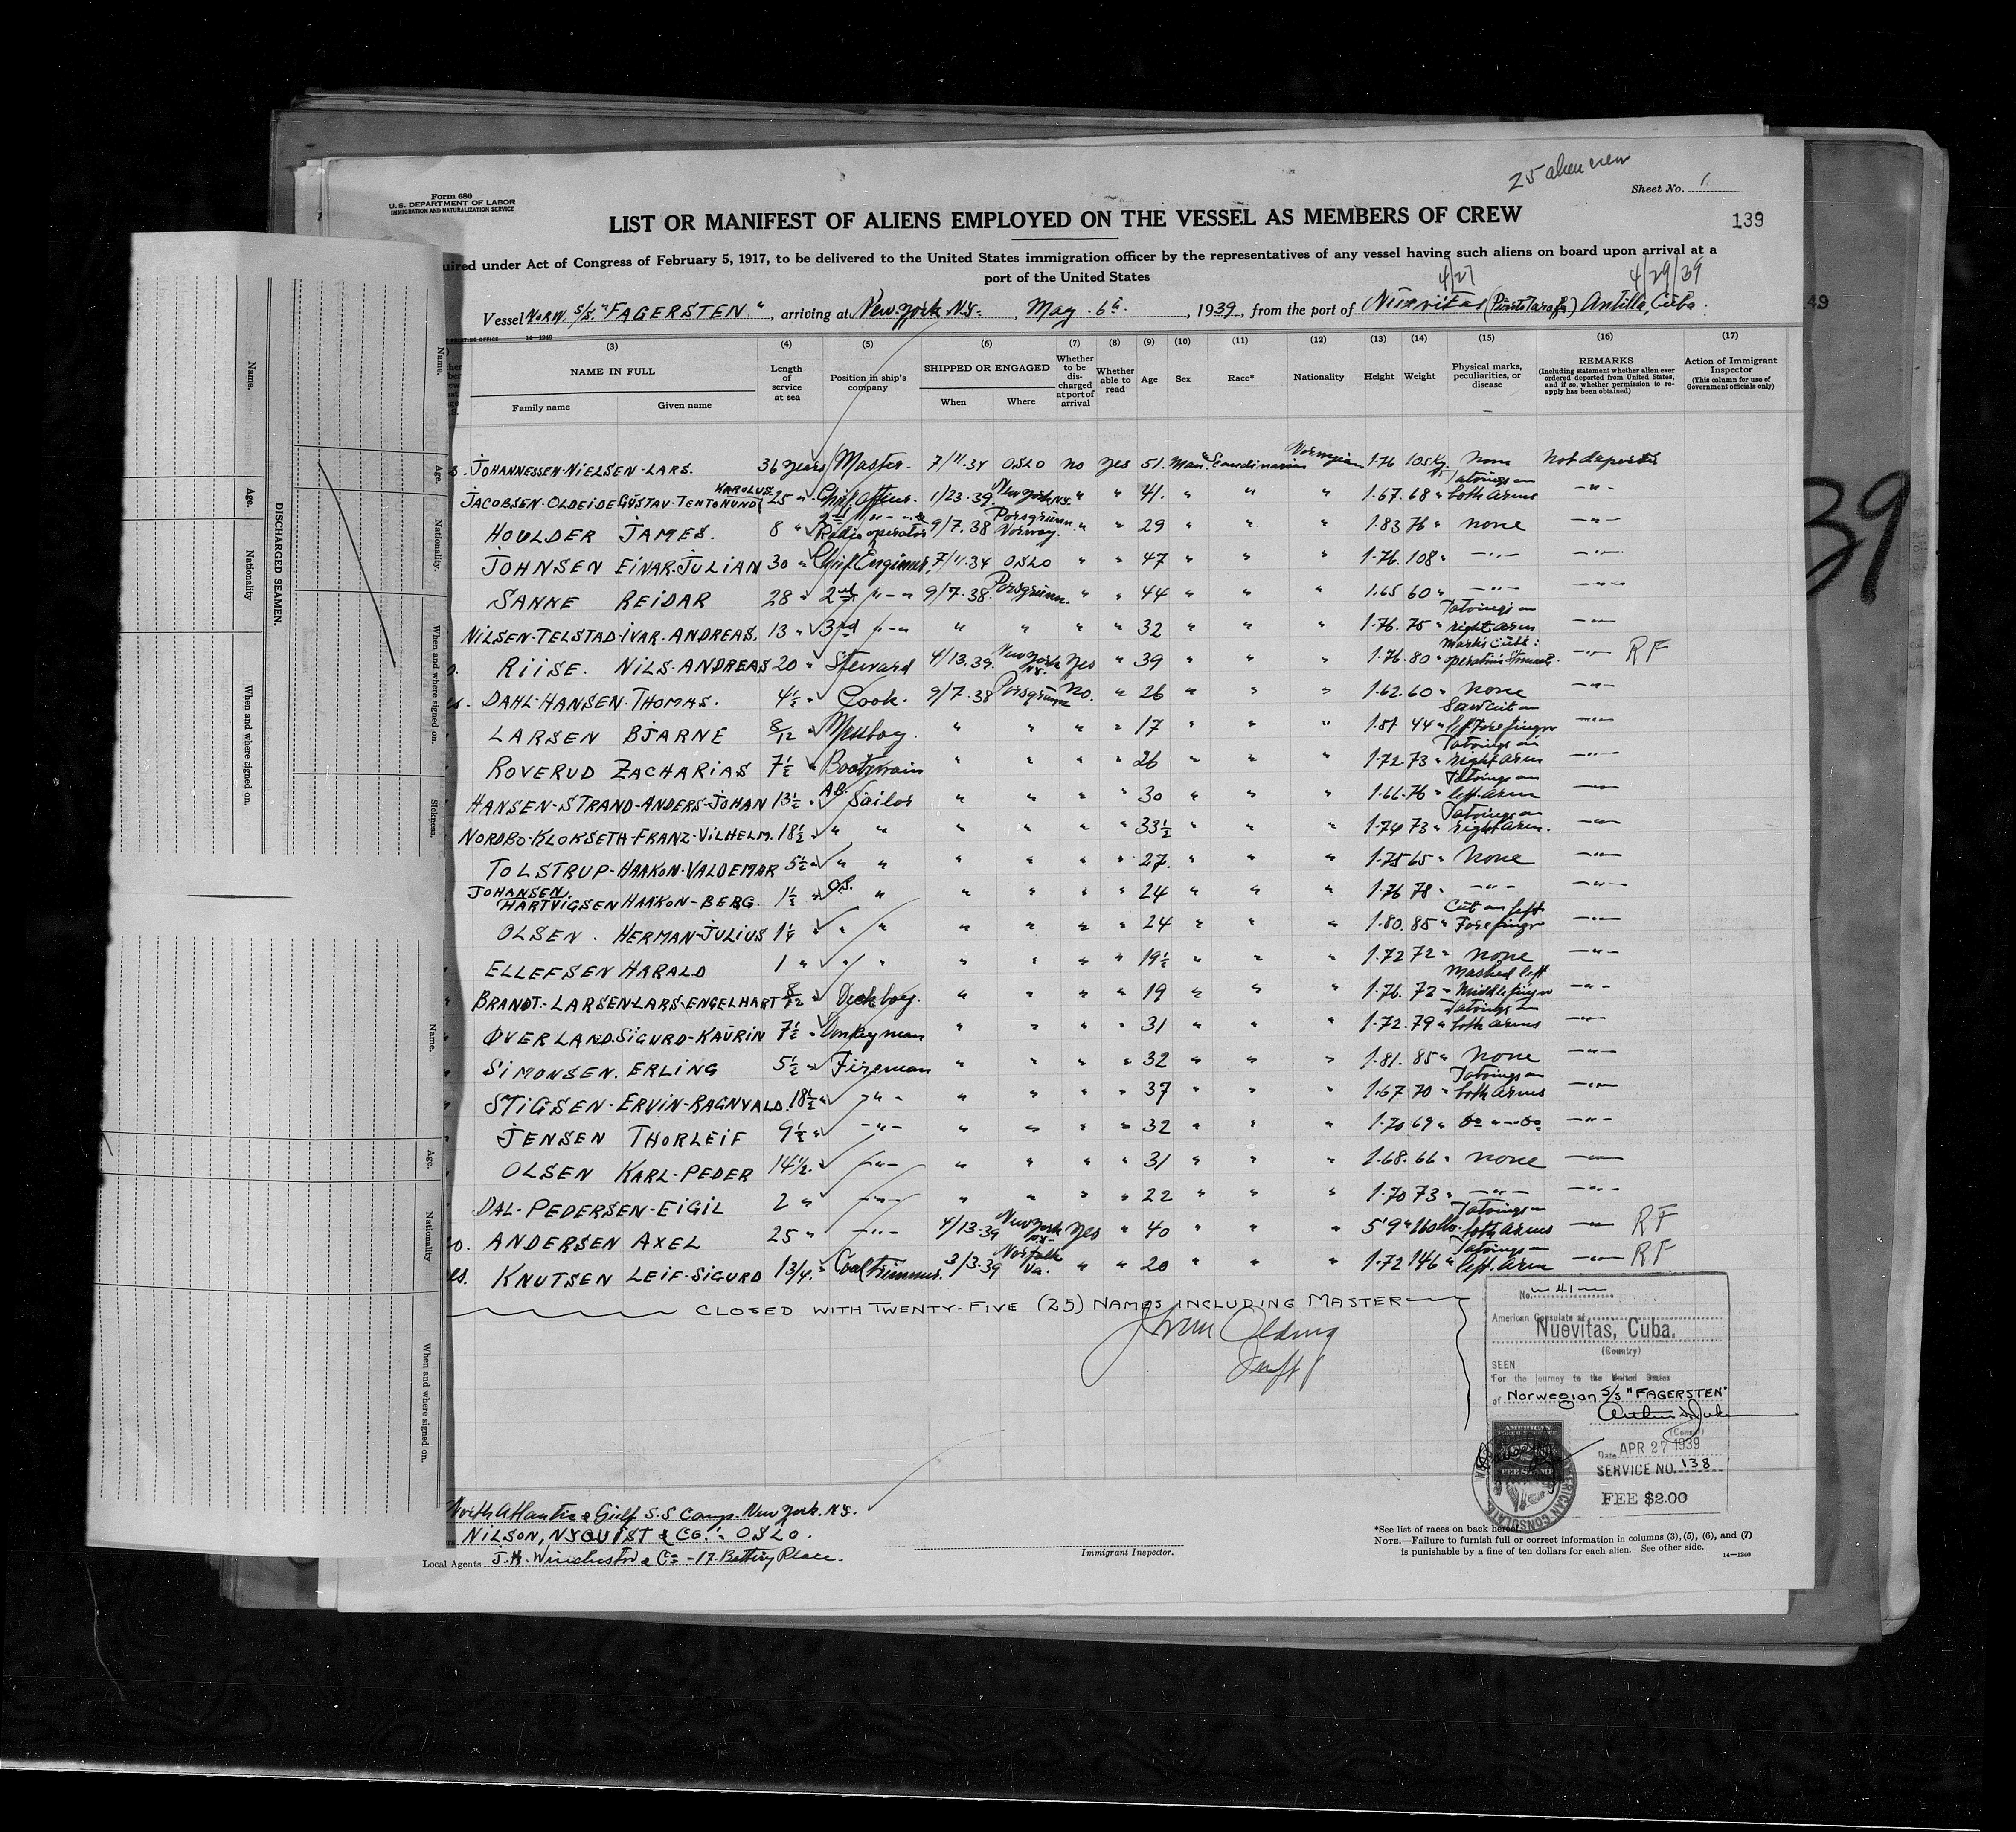 25 alien crew
Form 680
U. S. DEPARTMENT OF LABOR
IMMIGRATION AND NATURALIZATION SERVICE
Sheet No. 1
LIST OR MANIFEST OF ALIENS EMPLOYED ON THE VESSEL AS MEMBERS OF CREW
139
uired under Act of Congress of February 5, 1917, to be delivered to the United States immigration officer by the representatives of any vessel having such aliens on board upon arrival at a
port of the United States
4/27 4/29/39
Vessel NORW. S/S "FAGERSTEN", arriving at New York N.Y., May 6th, 1939, from the port of Nuevitas (Puerto Tarafa) Antilla, Cuba.
49
39
14—1240
(3) (4) (5) (6) (7) (8) (9) (10) (11) (12) (13) (14) (15) (16) (17)
NAME IN FULL
Family name Given name
Length of service at sea
Position in ship's company
SHIPPED OR ENGAGED
When Where
Whether to be discharged at port of arrival
Whether able to read
Age
Sex
Race*
Nationality
Height
Weight
Physical marks, peculiarities, or disease
REMARKS
(Including statement whether alien ever ordered deported from United States, and if so, whether permission to reapply has been obtained)
Action of Immigrant Inspector
(This column for use of Government officials only)
JOHANNESSEN-NIELSEN-LARS. 36 years Master. 7/11.34 OSLO no yes 51. Man. Scandinavian Norwegian 1.76 105 Kg. none Not deported
JACOBSEN-OLDEIDE GUSTAV-TENTONUND KAROLUS 25 " Chief officer. 1/23.39. New York N.Y. " " 41. " " " 1.67. 68 " Tatoings on both arms —"—
HOULDER JAMES. 8 " 2nd —"— & Radio operator 9/7.38 Porsgrunn Norway. " " 29 " " " 1.83 76 " none —"—
JOHNSEN EINAR-JULIAN 30 " Chief Engineer. 7/11.34 OSLO " " 47 " " " 1.76. 108 " —"— —"—
SANNE REIDAR 28 " 2nd "—" 9/7.38. Porsgrunn. " " 44 " " " 1.65 60 " —"— —"—
NILSEN-TELSTAD-IVAR. ANDREAS. 13 " 3rd "—" " " " " 32 " " " 1.76. 75 " Tatoings on right arm —"—
RIISE. NILS-ANDREAS 20 " Steward 4/13.39. New York N.Y. Yes " 39 " " " 1.76. 80 " —"— RF
DAHL-HANSEN-THOMAS. 4½ " Cook. 9/7.38 Porsgrunn no. " 26 " " " 1.62. 60 " none —"—
LARSEN BJARNE 8/12 " Messboy. " " " " 17 " " " 1.81 44 " Saw cut on left forefinger —"—
ROVERUD ZACHARIAS 7½ " Boatswain " " " " 26 " " " 1.72. 73 " Tatoings on right arm —"—
HANSEN-STRAND-ANDERS-JOHAN 13½ " AB. Sailor " " " " 30 " " " 1.66. 76 " Tatoings on left. arm —"—
NORDBO-KLOKSETH-FRANZ-VILHELM. 18½ " " " " " " " 33½ " " " 1.74 73 " Tatoings on right arm. —"—
TOLSTRUP-HAAKON-VALDEMAR 5½ " " " " " " " 27. " " " 1.75 65 " none —"—
JOHANSEN.
HARTVIGSEN HAAKON-BERG. 1½ " O.S. " " " " " 24 " " " 1.76 78 " —"— —"—
OLSEN. HERMAN-JULIUS 1¼ " " " " " " " 24 " " " 1.80. 85 " Cut on left Forefinger —"—
ELLEFSEN HARALD 1 " " " " " " " 19½ " " " 1.72 72 " none —"—
BRANDT-LARSEN-LARS-ENGELHART 8/12 " Deckboy. " " " " 19 " " " 1.76. 72 " Mashed left Middlefinger —"—
ØVERLAND. SIGURD-KAURIN 7½ " Donkeyman " " " " 31 " " " 1.72. 79 " Tatoings on both arms —"—
SIMONSEN. ERLING 5½ " Fireman " " " " 32 " " " 1.81. 85 " none —"—
STIGSEN-ERVIN-RAGNVALD. 18½ " —"— " " " " 37 " " " 1.67 70 " Tatoings on both arms —"—
JENSEN THORLEIF 9½ " —"— " " " " 32 " " " 1.70 69 " Do "—" Do —"—
OLSEN KARL-PEDER 14½ " —"— " " " " 31 " " " 1.68. 66 " none —"—
DAL-PEDERSEN-EIGIL 2 " —"— " " " " 22 " " " 1.70 73 " —"— —"—
ANDERSEN AXEL 25 " —"— 4/13.39 New York N.Y. Yes " 40 " " " 5'9" 160 lbs. Tatoings on both arms —"— RF
KNUTSEN LEIF-SIGURD 1 3/4 " Coal trimmer. 3/3.39 Norfolk Va. " " 20 " " " 1.72 146 " Tatoings on left. arm —"— RF
CLOSED WITH TWENTY-FIVE (25) NAMES INCLUDING MASTER
No. 41
American Consulate at
Nuevitas, Cuba.
(Country)
SEEN
For the journey to the United States
of Norwegian S/S "FAGERSTEN"
(Consul)
Date APR 27 1939
SERVICE NO. 138
FEE $2.00
AMERICAN
FEE STAMP
AMERICAN CONSULATE
North Atlantic & Gulf S.S Comp. New York. N.Y.
NILSON, NYQUIST & CO. OSLO.
Local Agents J.H. Winchester & Co - 17. Battery Place.
Immigrant Inspector.
*See list of races on back hereof.
NOTE.—Failure to furnish full or correct information in columns (3), (5), (6), and (7)
is punishable by a fine of ten dollars for each alien. See other side. 14—1240
DISCHARGED SEAMEN.
Name. Age. Nationality When and where signed on.
Name. Age. Nationality. When and where signed on. Sickness.
Name. Age. Nationality When and where signed on.